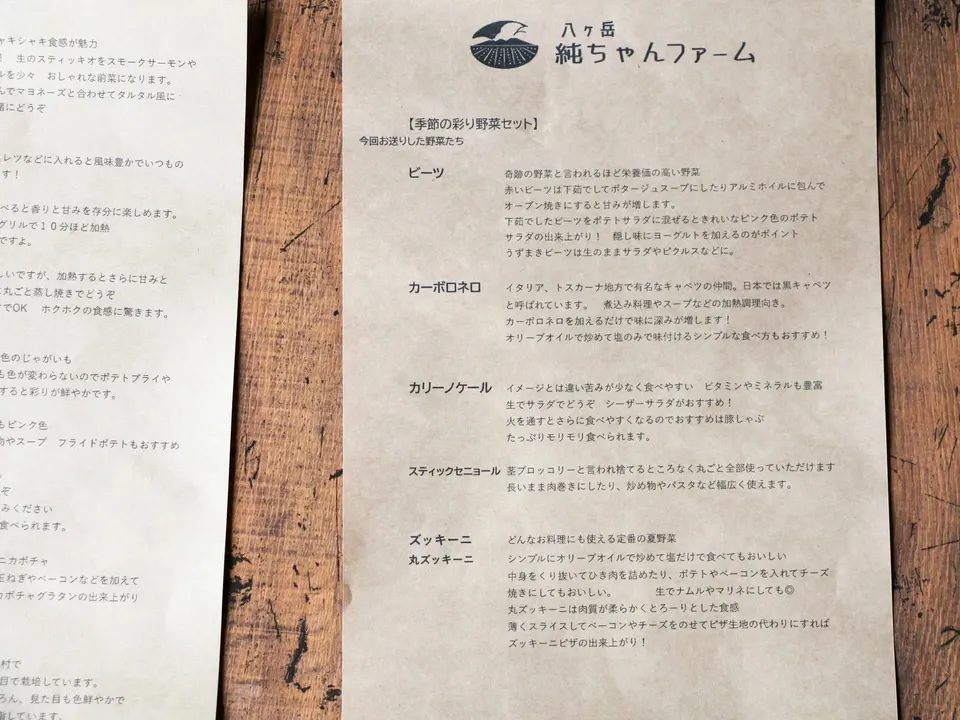 ャキシャキ食感が魅力
！ 生のスティッキオをスモークサーモンや
ルを少々 おしゃれな前菜になります。
んでマヨネーズと合わせてタルタル風に
緒にどうぞ
レツなどに入れると風味豊かでいつもの
す！
べると香りと甘みを存分に楽しめます。
グリルで１０分ほど加熱
ですよ。
しいですが、加熱するとさらに甘みと
丸ごと蒸し焼きでどうぞ
でOK ホクホクの食感に驚きます。
色のじゃがいも
も色が変わらないのでポテトプライや
すると彩りが鮮やかです。
もピンク色
物やスープ フライドポテトもおすすめ
ぞ
みください
食べられます。
ニカボチャ
玉ねぎやベーコンなどを加えて
カボチャグラタンの出来上がり
村で
目で栽培しています。
ろん、見た目も色鮮やかで
指しています。
八ヶ岳
純ちゃんファーム
【季節の彩り野菜セット】
今回お送りした野菜たち
ビーツ 奇跡の野菜と言われるほど栄養価の高い野菜
赤いビーツは下茹でしてポタージュスープにしたりアルミホイルに包んで
オーブン焼きにすると甘みが増します。
下茹でしたビーツをポテトサラダに混ぜるときれいなピンク色のポテト
サラダの出来上がり！ 隠し味にヨーグルトを加えるのがポイント
うずまきビーツは生のままサラダやピクルスなどに。
カーボロネロ イタリア、トスカーナ地方で有名なキャベツの仲間。日本では黒キャベツ
と呼ばれています。 煮込み料理やスープなどの加熱調理向き。
カーボロネロを加えるだけで味に深みが増します！
オリーブオイルで炒めて塩のみで味付けるシンプルな食べ方もおすすめ！
カリーノケール イメージとは違い苦みが少なく食べやすい ビタミンやミネラルも豊富
生でサラダでどうぞ シーザーサラダがおすすめ！
火を通すとさらに食べやすくなるのでおすすめは豚しゃぶ
たっぷりモリモリ食べられます。
スティックセニョール 茎ブロッコリーと言われ捨てるところなく丸ごと全部使っていただけます
長いまま肉巻きにしたり、炒め物やパスタなど幅広く使えます。
ズッキーニ どんなお料理にも使える定番の夏野菜
丸ズッキーニ シンプルにオリーブオイルで炒めて塩だけで食べてもおいしい
中身をくり抜いてひき肉を詰めたり、ポテトやベーコンを入れてチーズ
焼きにしてもおいしい。 生でナムルやマリネにしても◎
丸ズッキーニは肉質が柔らかくとろーりとした食感
薄くスライスしてベーコンやチーズをのせてピザ生地の代わりにすれば
ズッキーニピザの出来上がり！